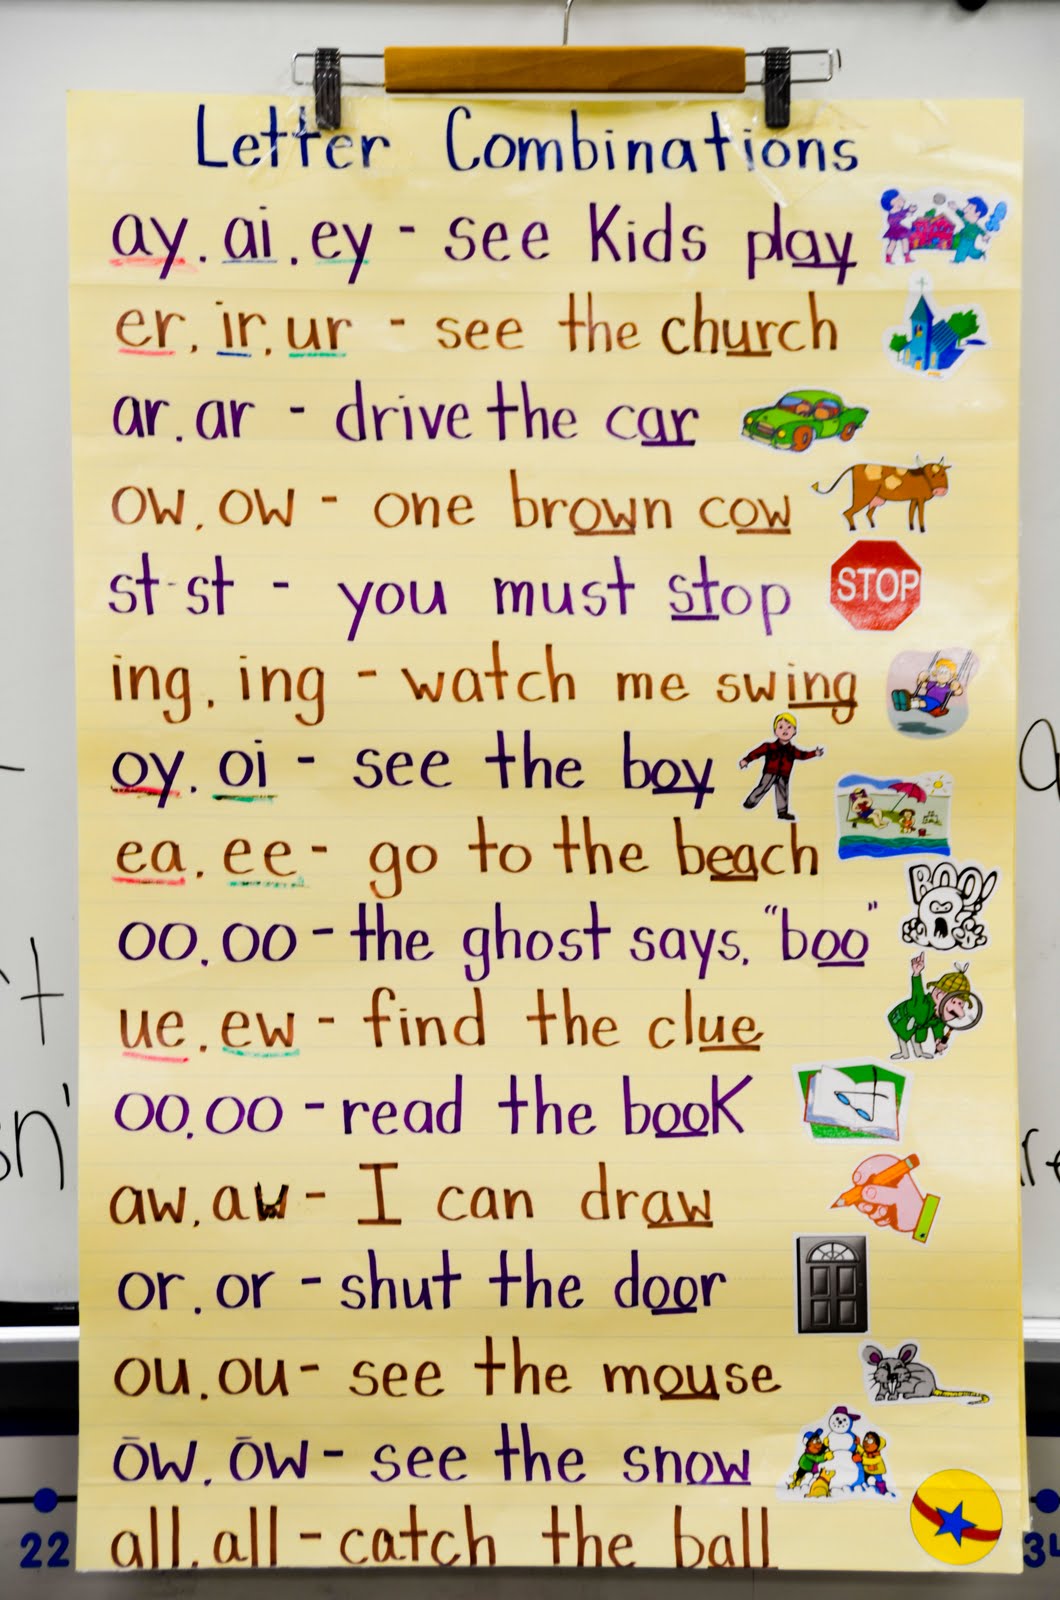 Letter Combinations
ay. ai. ey - see Kids play
er. ir. ur - see the church
ar. ar - drive the car
ow. ow - one brown cow
st-st - you must stop
STOP
ing. ing - watch me swing
oy. oi - see the boy
ea. ee - go to the beach
BOO!
oo. oo - the ghost says, "boo"
ue. ew - find the clue
oo. oo - read the book
aw. aw - I can draw
or. or - shut the door
ou. ou - see the mouse
ōw. ōw - see the snow
all. all - catch the ball
22
34